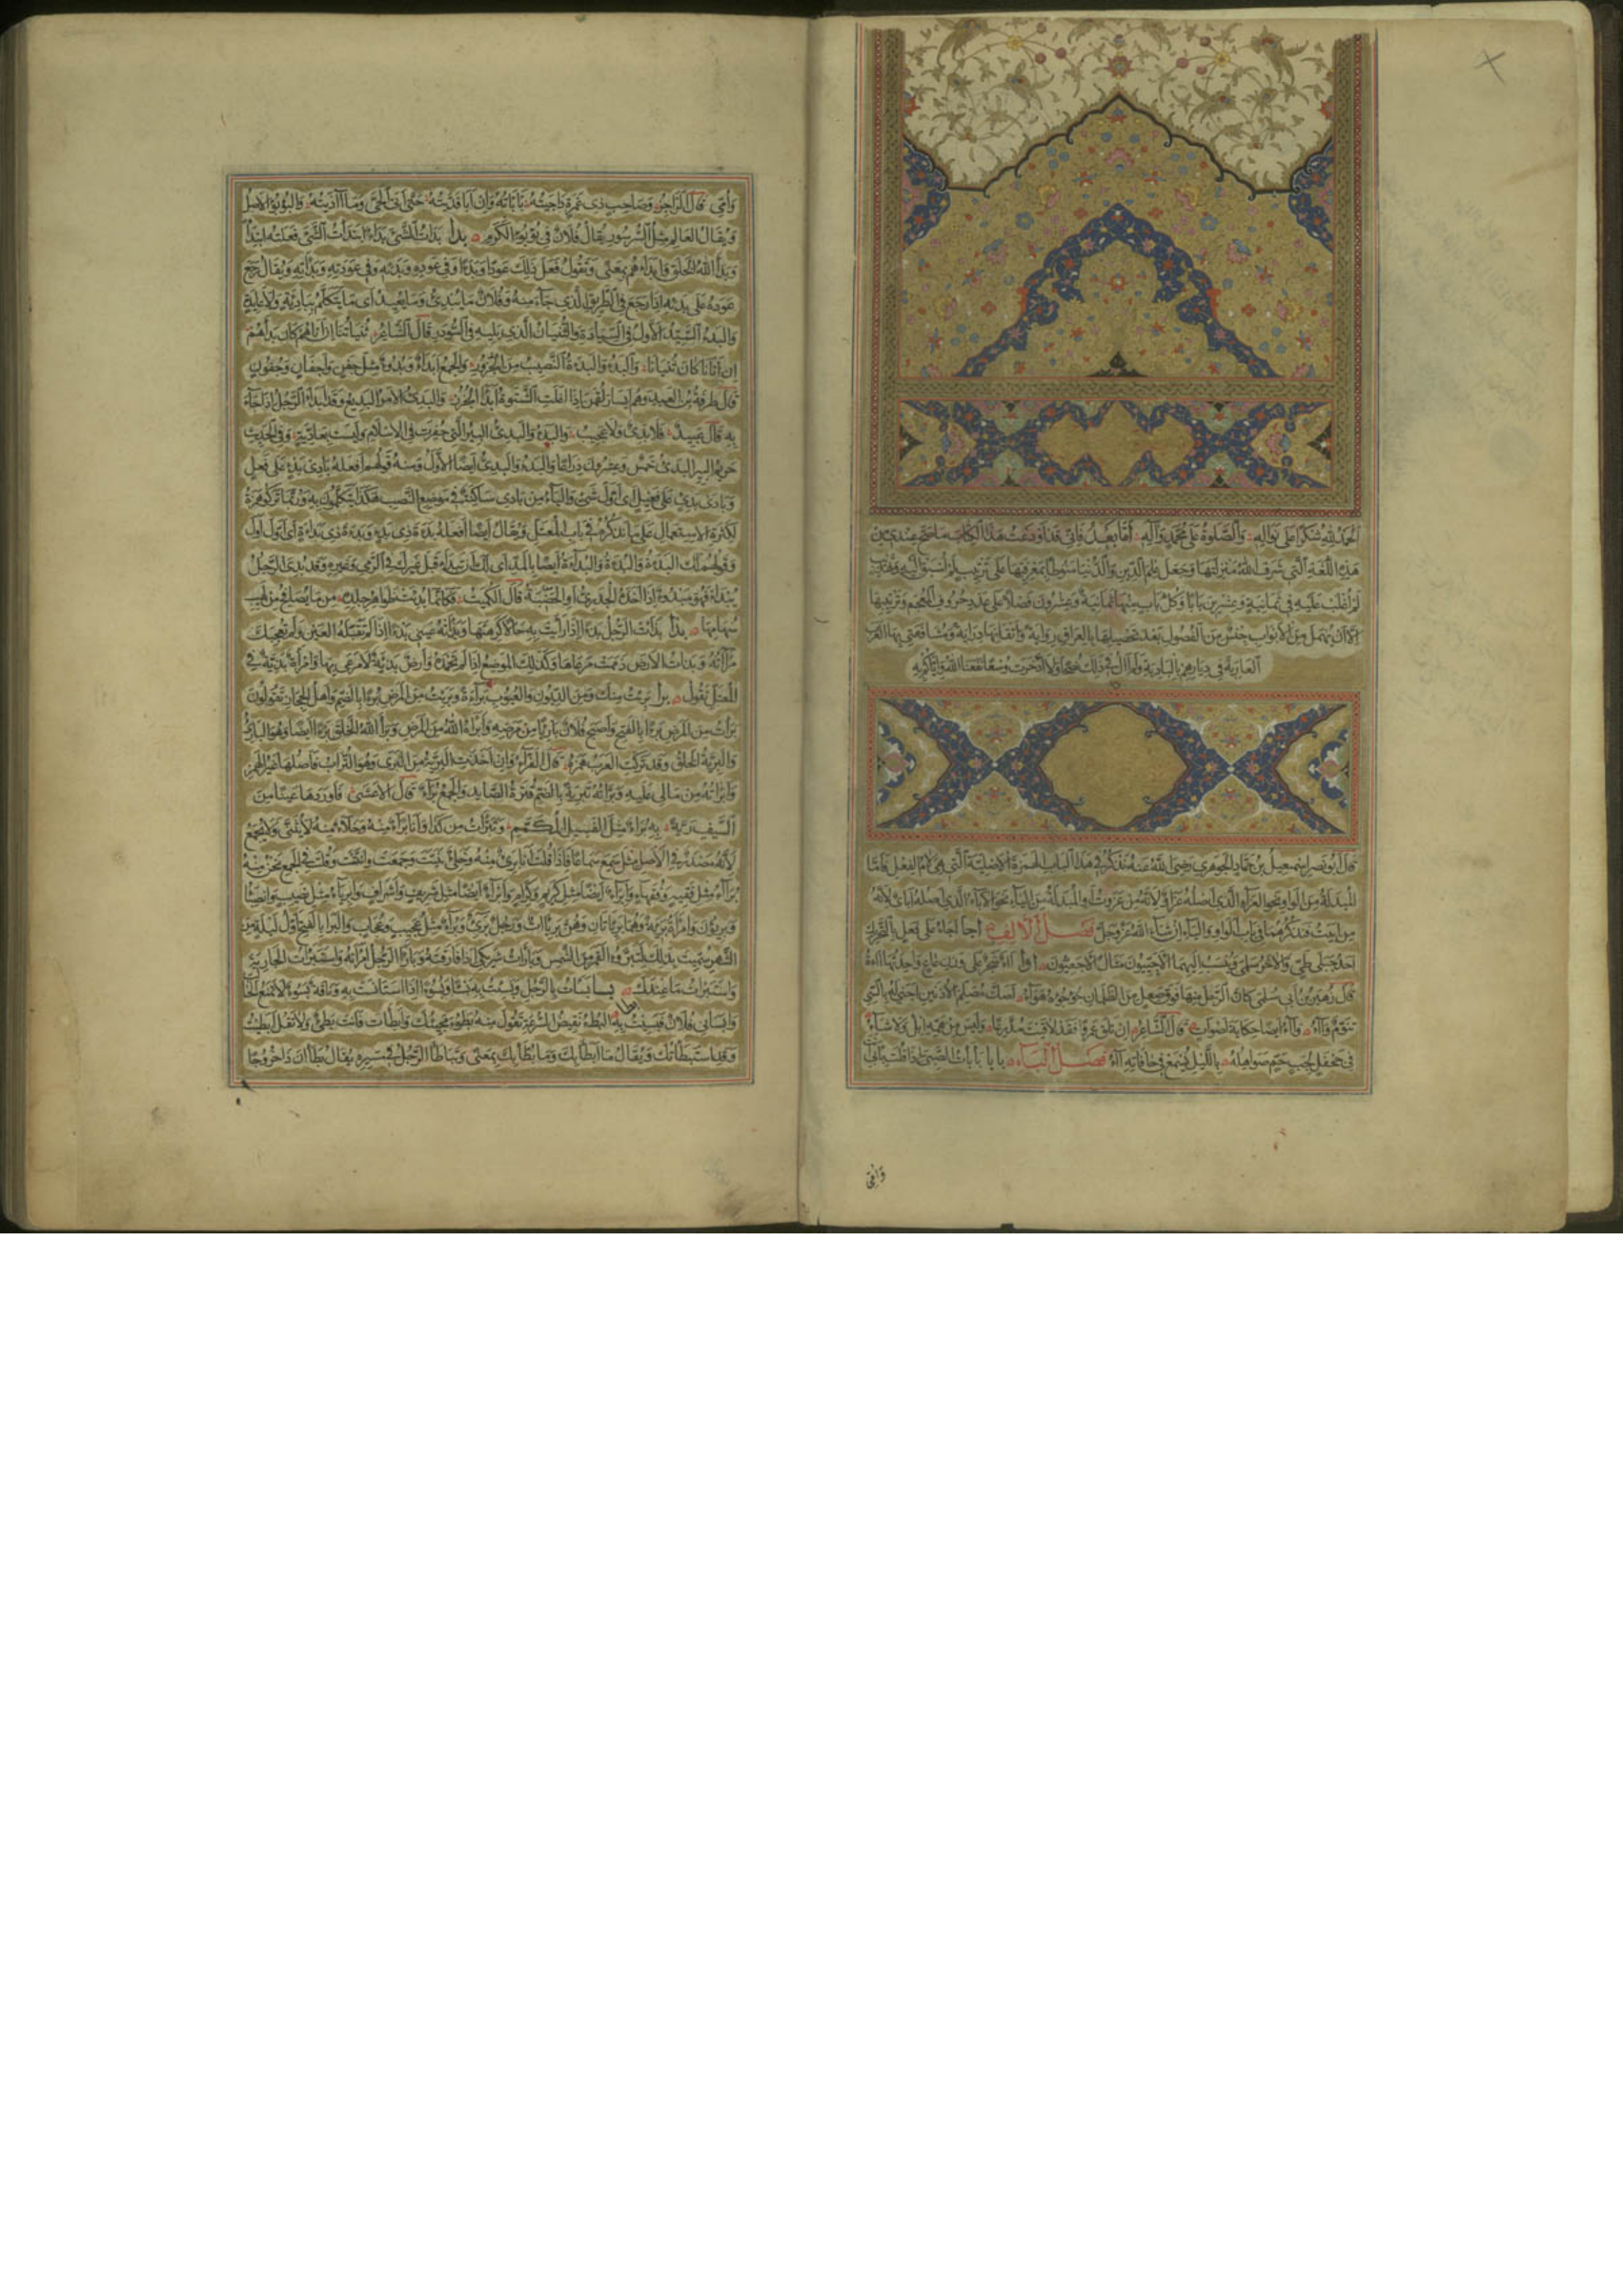 الحمد لله شكرا على نواله والصلوة على محمد وآله أما بعد فإني قد أودعت هذا الكتاب ما صح عندي من
هذه اللغة التي شرف الله منزلتها وجعل علم الدين والدنيا منوطا بمعرفتها على ترتيب لم أسبق إليه وتهذيب
لم أغلب عليه في ثمانية وعشرين بابا وكل باب منها ثمانية وعشرون فصلا على عدد حروف المعجم وترتيبها
إلا أن يهمل من الأبواب جنس من الفصول بعد تحصيلها بالعراق رواية وإتقانها دراية ومشافهتي بها العرب
العاربة في ديارهم بالبادية ولم آل في ذلك نصحا ولا ادخرت وسعا نفعنا الله وإياكم به
قال أبو نصر إسمعيل بن حماد الجوهري رضي الله عنه نذكر في هذا الباب الهمزة الأصلية التي هي لام الفعل فأما
المبدلة من الواو نحو العزاء الذي أصله عزاو لأنه من عزوت أو المبدلة من الياء نحو الأباء الذي أصله أباي لأنه
من أبيت فنذكرهما في باب الواو والياء إن شاء الله عز وجل فصل الألف أجأ أجأ على فعل بالتحريك
أحد جبلي طيئ والآخر سلمى وينسب إليهما الأجئيون مثال الأجعيون أوأ آء شجر على وزن عاع واحدتها آءة
قال زهير بن أبي سلمى كأن الرحل منها فوق صعل من الظلمان جؤجؤه هواء أصك مصلم الأذنين أجنى له بالسي
تنوم وآء وآء أيضا حكاية أصوات قال الشاعر إن تلق عمرا فقد لاقيت مدرعا وليس من همه إبل ولا شاء
في جحفل لجب جم صواهله بالليل يسمع في حافاته آء فصل الباء بابا بأبأت الصبي إذا قلت بأبي
وأمي
وأمي قال الراجز وصاحب ذي غمرة داجيته بأبأته وإن أبا فديته حتى أتى الحي وما آذيته والبؤبؤ الأصل
ويقال العالم مثل السرسور يقال فلان في بؤبؤ الكرم بدأ بدأت الشيء بدءا ابتدأت الشيء فعلته ابتداء
وبدأ الله الخلق وأبدأهم بمعنى وتقول فعل ذلك عودا وبدءا وفي عوده وبدئه وفي عودته وبدأته ويقال رجع
عوده على بدئه إذا رجع في الطريق الذي جاء منه وفلان ما يبدئ وما يعيد أي ما يتكلم ببادئة ولا عائدة
والبدء السيد الأول في السيادة والثنيان الذي يليه في السودد قال الشاعر ثنياننا إن أتاهم كان بدأهم
إن أتانا كان ثنيانا والبدء والبدأة النصيب من الجزور والجمع أبداء وبدوء مثل جفن وأجفان وجفون
قال طرفة بن العبد وهم أيسار لقمن إذا أغلت الشتوة أبداء الجزر والبديء الأمر البديع وقد أبدأ الرجل إذا جاء
به قال عبيد فلا بديء ولا عجيب والبدء والبديء البئر التي حفرت في الإسلام وليست بعادية وفي الحديث
حريم البئر البديء خمس وعشرون ذراعا والبدء والبديء أيضا الأول ومنه قولهم أفعله بادي بدء على فعل
وبادي بديء على فعيل أي أول شيء والياء من بادي ساكنة في موضع النصب هكذا يتكلمون به وربما تركوا همزه
لكثرة الاستعمال على ما نذكره في باب المعتل ويقال أيضا أفعله بدأة ذي بدء وبدأة ذي بدأة أي أول أول
وقولهم لك البدء والبدأة والبداءة أيضا بالمد أي لك أن تبدأ قبل غيرك في الرمي وغيره وقد بدئ الرجل
يبدأ بدءا فهو مبدوء إذا أخذه الجدري أو الحصبة قال الكميت فكأنما بدئت ظواهر جلده مما يصافح من لهيب
سهامها بذأ بذأت الرجل بذءا إذا رأيت به حالا كرهتها وبذأته عيني بذءا إذا لم تقبله العين ولم تعجبك
مرآته وبذأت الأرض ذممت مرعاها وكذلك الموضع إذا لم تحمده وأرض بذيئة لا مرعى بها وامرأة بذية في
المعتل نقول برأ برئت منك ومن الديون والعيوب براءة وبرئت من المرض برءا بالضم وأهل الحجاز يقولون
برأت من المرض برءا بالفتح وأصبح فلان بارئا من مرضه وأبرأه الله من المرض وبرأ الله الخلق برءا أيضا وهو البارئ
والبرية الخلق وقد تركت العرب همزه قال الفراء وإن أخذت البرية من البرى وهو التراب فأصلها غير الهمز
وأبرأته من مالي عليه وبرأته تبرئة والبرأة بالضم قترة الصايد والجمع برأ قال الأعشى فأوردها عينا من
السيف رية به برأ مثل الفسيل المكمم وتبرأت من كذا وأنا براء منه وخلاء منه لا يثنى ولا يجمع
لأنه مصدر في الأصل مثل سمع سماعا فإذا قلت أنا بريء منه وخلي ثنيت وجمعت وأنثت وقلت في الجمع نحن منه
برآء مثل فقيه وفقهاء وبراء أيضا مثل كريم وكرام وأبراء أيضا مثل شريف وأشراف وأبرياء مثل نصيب وأنصباء
وبريؤن وامرأة بريئة وهما بريئتان وهن بريئات ورجل بريء وبراء مثل عجيب وعجاب والبراء بالفتح أول ليلة من
الشهر سميت بذلك لتبرؤ القمر من الشمس وبارأت شريكي إذا فارقته وبارأ الرجل امرأته واستبرأت الجارية
واستبرأت ما عندك بسأ بسأت بالرجل وبسئت به بسأ وبسوءا إذا استأنست به وناقة بسوء لا تمنع الحالب
وأبسأني فلان فبسئت به بطأ البطء نقيض السرعة تقول منه بطؤ مجيئك وأبطأت فأنت بطيء ولا تقل أبطيت
وقد استبطأتك ويقال ما أبطأ بك وما بطأ بك بمعنى وتباطأ الرجل في مسيره يقال بطآن ذا خروجا